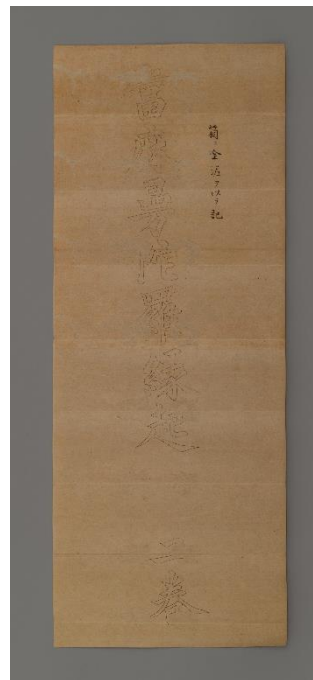 箱ニ金泥ヲ以テ記
當麻曼陀羅縁起 二巻